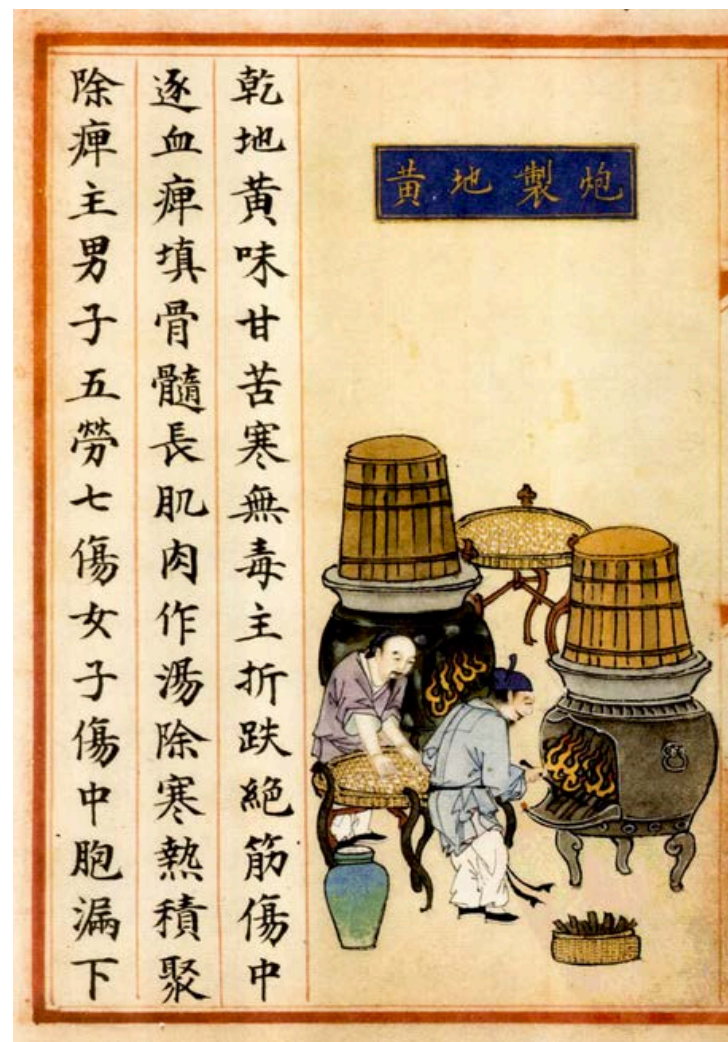 炮製地黃
乾地黃味甘苦寒無毒主折跌絕筋傷中
逐血痺填骨髓長肌肉作湯除寒熱積聚
除痺主男子五勞七傷女子傷中胞漏下